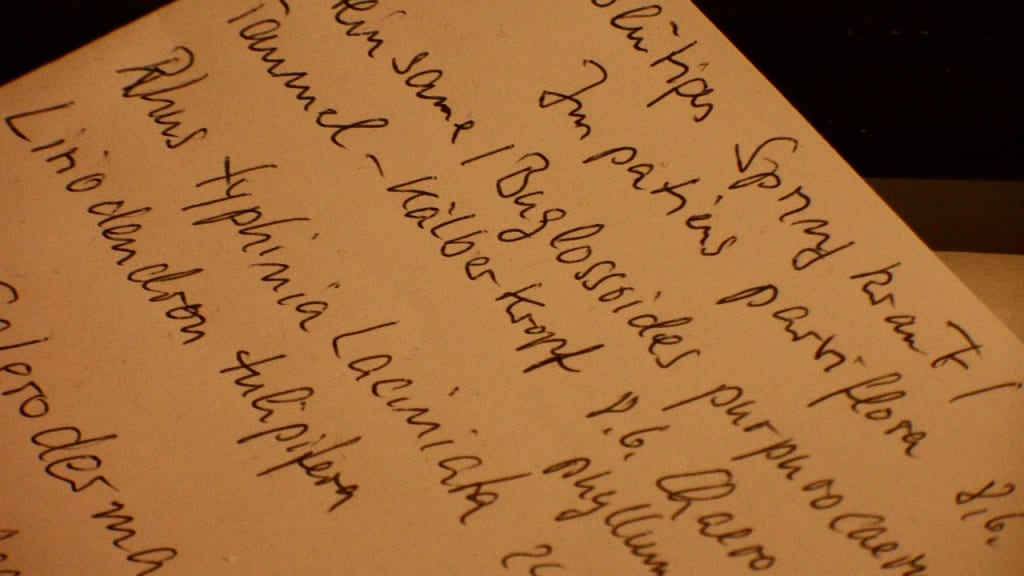 blütiges Springkraut /
Impatiens parviflora 8.6.
steinsame / Buglossoides purpurocaeru
Taumel-Kälberkropf 8.6. Chaero
phyllum
Rhus typhinia Laciniata
Liriodendron tulipifera
Scleroderma